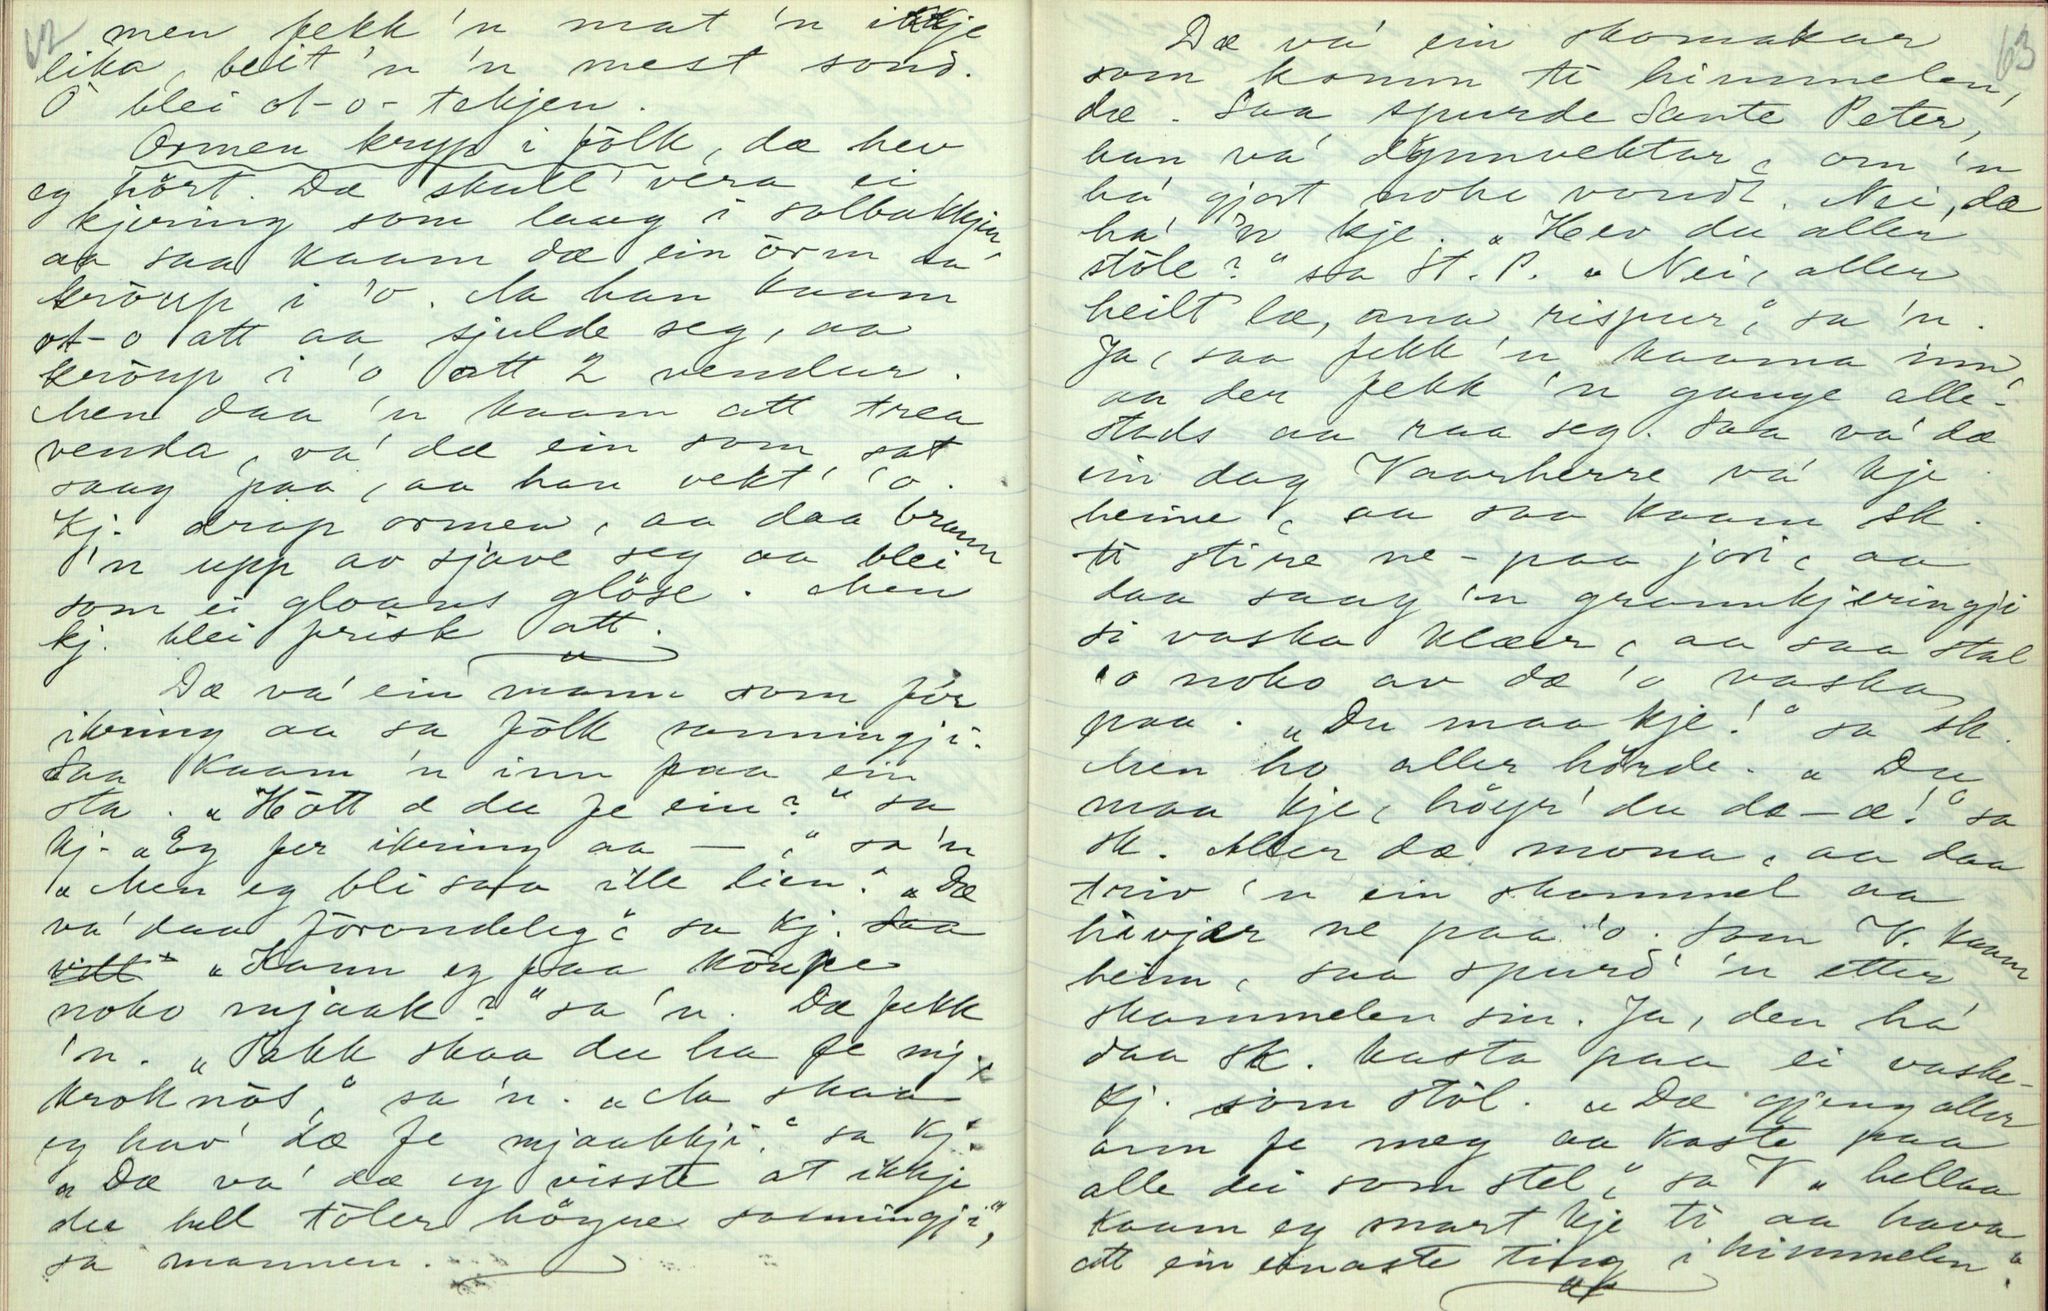 62
men fekk 'n mat 'n ikkje
lika, beit 'n 'n mest sond.
O blei ot-o-tekjen.
Ormen kryp i folk, dæ hev
eg hört. Dæ skull' vera ei
kjering som laag i solbakkjen
aa saa kaam dæ ein orm aa
kröup i 'o. Aa han kaam
ot-o att aa sjulde seg, aa
kröup i 'o att 2 vendur.
Men daa 'n kaam att trea
venda, va' dæ ein som sat
saag paa, aa han vekt' 'o.
Kj. drap ormen, aa daa brann
'n upp av sjave seg aa blei
som ei gloans glöse. Men
kj. blei frisk att.
Dæ va' ein mann som för
ikring aa sa fölk sanningji.
Saa kaam 'n inn paa ein
sta. „Hött æ du fe ein?" sa
kj. „Eg fer ikring aa —," sa 'n
„Men eg bli saa ille lien." „Dæ
va' daa förondeleg," sa kj. Saa
vill „Kann eg faa köupe
noko mjaak?" sa 'n. Dæ fekk
'n. „Takk skaa du ha fe mj.
kroknös," sa 'n. „Aa skaa
eg hav' dæ fe mjaakkji." sa kj.
„Dæ va' dæ eg visste at ikkje
du hell töler höyre sanningji",
sa mannen.
63
Dæ va' ein skomakar
som komm ti himmelen,
dæ. Saa spurde Sante Peter,
han va' dynnvektar, om 'n
ha' gjort noke vondt. Nei, dæ
ha' 'n kje. „Hev du aller
stöle?" sa St. P. „Nei, aller
heilt læ, ana rispur," sa 'n.
Ja, saa fekk 'n kaama inn,
aa der fekk 'n gange alle-
stads aa raa seg. Saa va' dæ
ein dag Vaarherre va' kje
heime, aa saa kaam sk.
ti stire ne-paa jori, aa
daa saag 'n grannkjeringji
si vaska klæer, aa saa stal
'o noko av dæ 'o vaska
paa. „Du maa kje!" sa sk.
Men ho aller hörde. „Du
maa kje, höyr' du dæ-æ!" sa
sk. Aller dæ mona, aa daa
triv 'n ein skammel aa
hivjer ne paa 'o. Som V. kaam
heim, saa spurd' 'n etter
skammelen sin. Ja, den ha'
daa sk. kasta paa ei vaske-
kj. som stöl. „Dæ gjeng aller
ann fe meg aa kaste paa
alle dei som stel," sa V „hellaa
kaam eg snart kje ti aa hava
att ein einaste ting i himmelen."